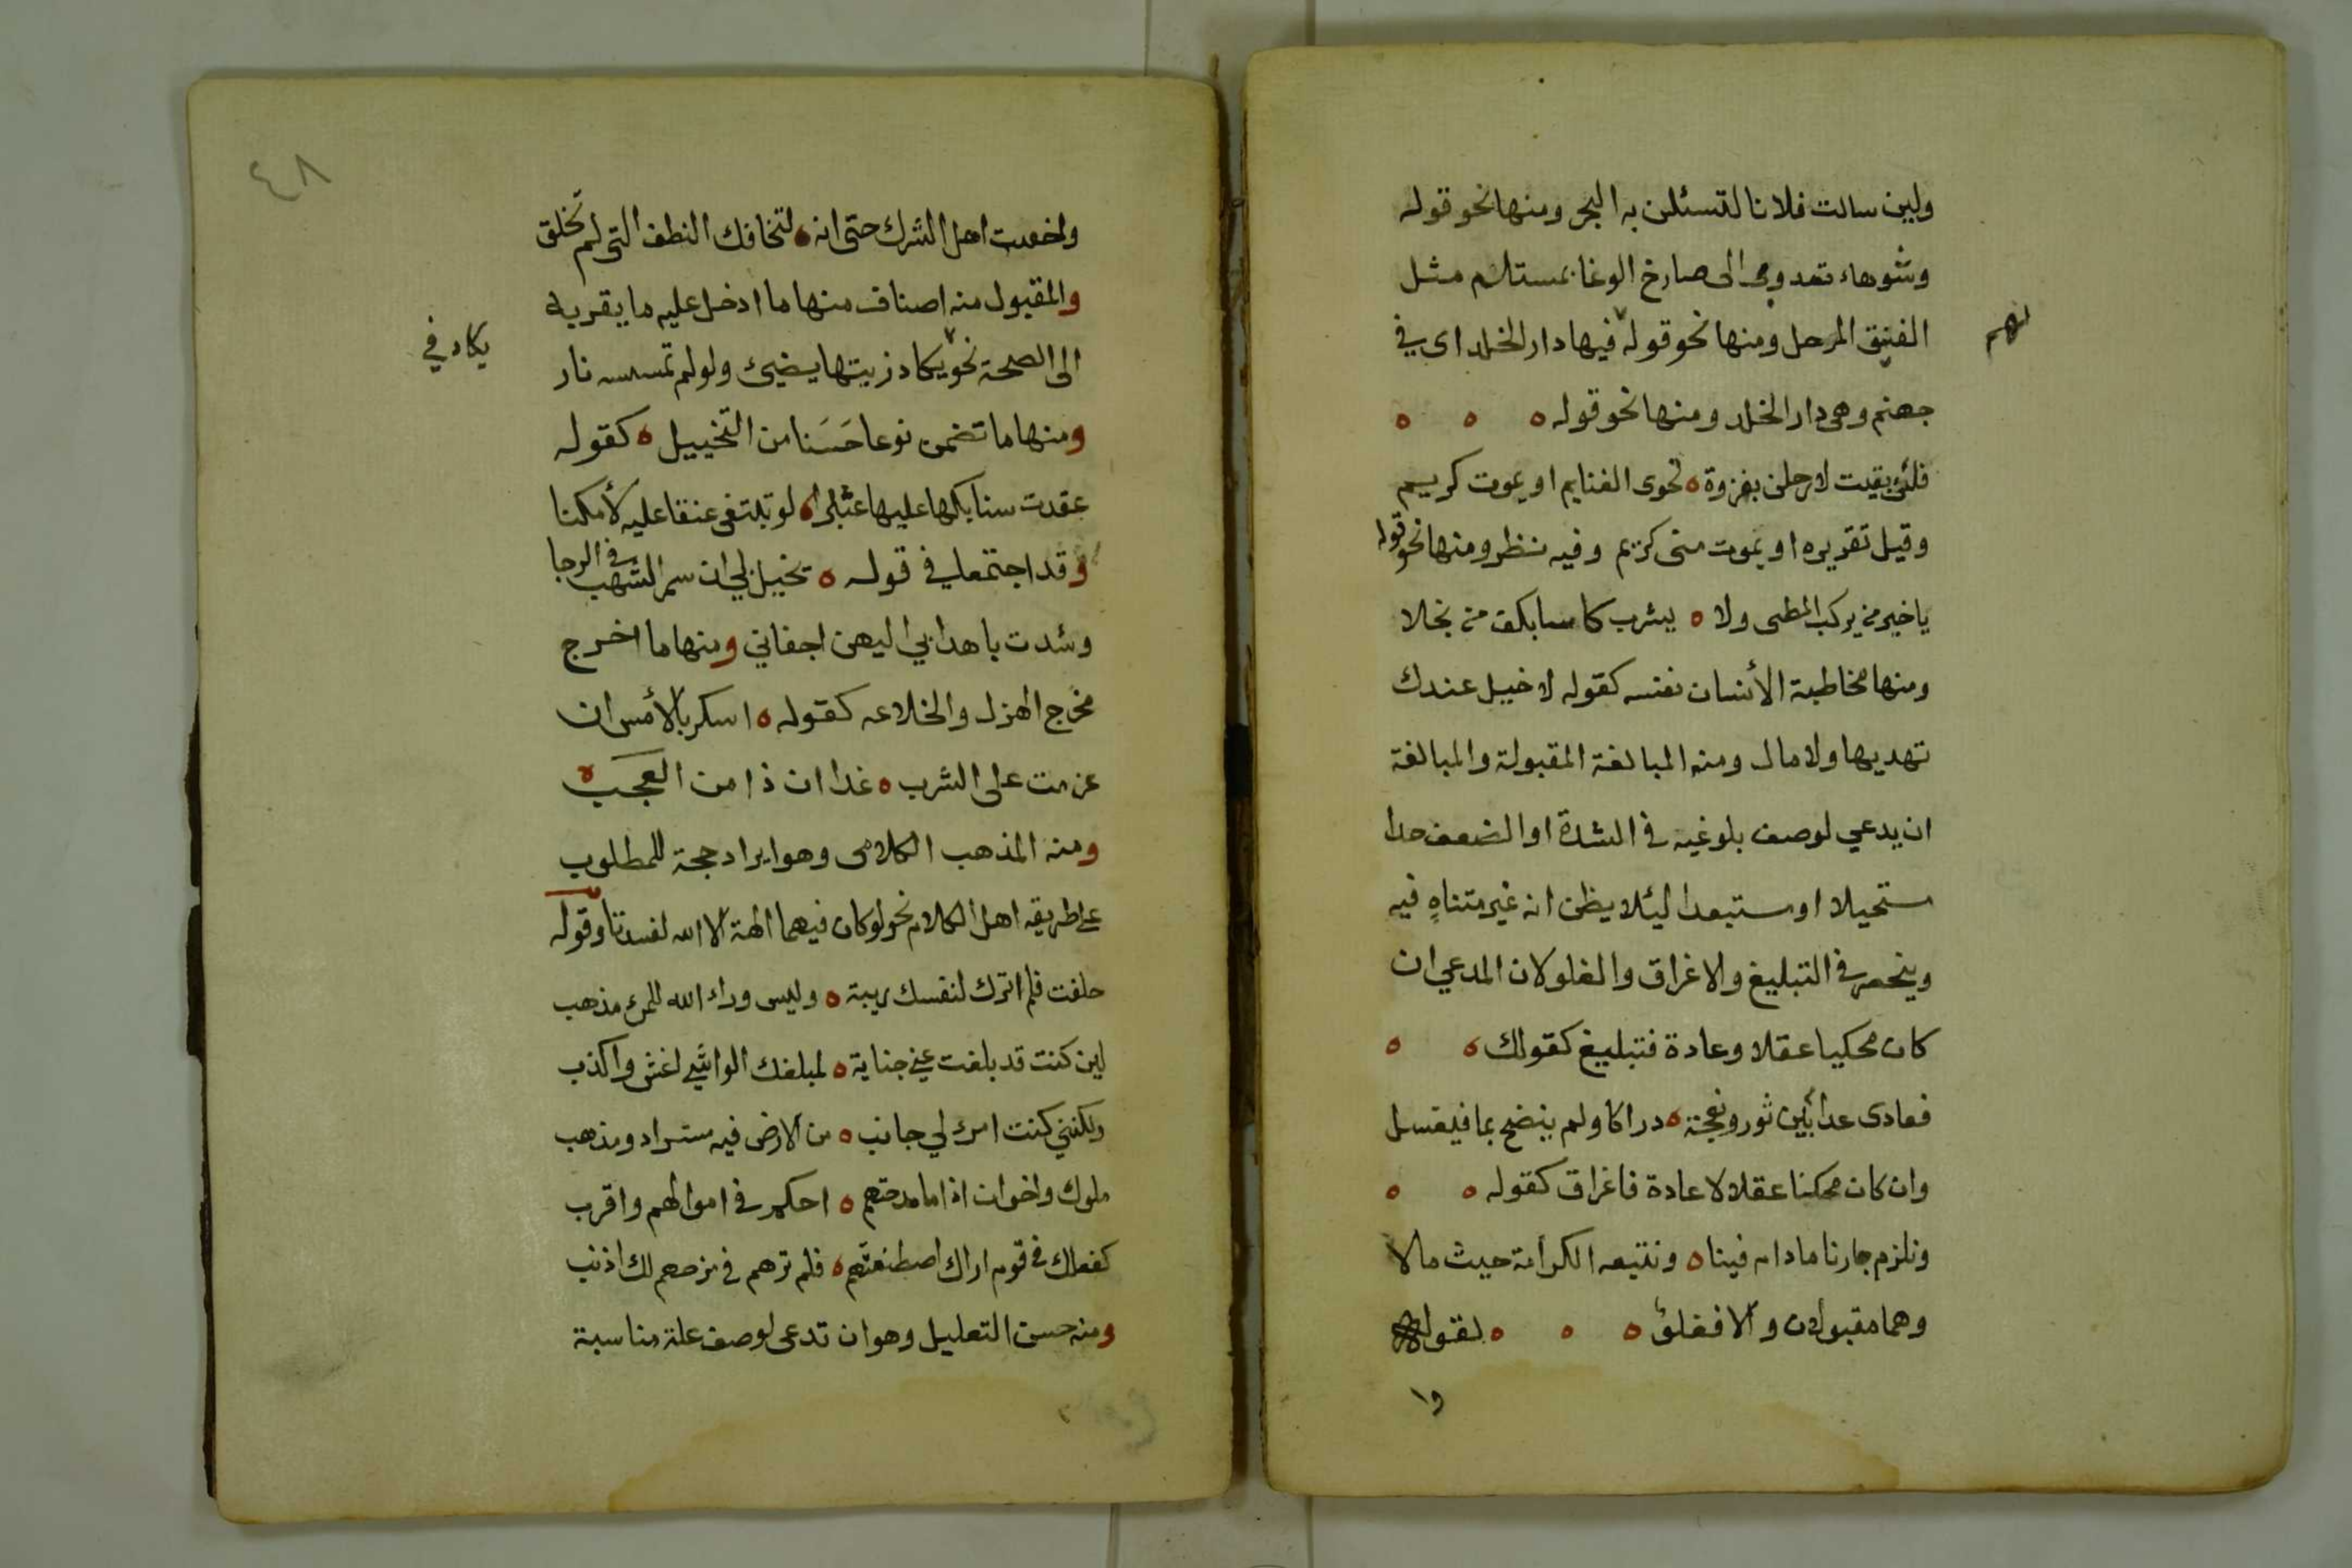 ولين سالت فلانا لتسئلن به البحر ومنها نحو قوله
وشوهاء تعدو بى الى صارخ الوغا بمستلئم مثل
الفنيق المرحل ومنها نحو قوله فيها دار الخلد اى في
لهم
جهنم وهى دار الخلد ومنها نحو قوله
فلئن بقيت لارحلن بغزوة تحوى الغنايم او يموت كريم
وقيل تقديره او يموت منى كريم وفيه نظر ومنها نحو قوله
يا خير من يركب المطى ولا يشرب كاسا بكف من بخلا
ومنها مخاطبة الأنسان نفسه كقوله لا خيل عندك
تهديها ولا مال ومنه المبالغة المقبولة والمبالغة
ان يدعي لوصف بلوغه في الشدة او الضعف حدا
مستحيلا او مستبعدا ليئلا يظن انه غير متناهٍ فيه
وينحصر في التبليغ والاغراق والغلو لان المدعي ان
كان محكيا عقلا وعادة فتبليغ كقولك
فعادى عدا بين ثور ونعجة دراكا ولم ينضح بما فيغسل
وان كان ممكنا عقلا لا عادة فاغراق كقوله
ونلزم جارنا مادام فينا ونتبعه الكرامة حيث مالا
وهما مقبولان والا فغلو كقوله
وا
٤٨
واخفت اهل الشرك حتى انه لتخافك النطف التى لم تخلق
والمقبول منه اصناف منها ما ادخل عليه ما يقربه
الى الصحة نحو يكاد زيتها يضيئ ولو لم تمسسه نار
يكاد في
ومنها ما تضمن نوعا حَسَنا من التخييل كقوله
عقدت سنابكها عليها عثيرا لو تبتغى عنقا عليه لأمكنا
وقد اجتمعا في قوله تخيل لي ان سمر الشهب في الدجا
وشدت باهدابي اليهن اجفاني ومنها ما اخرج
مخرج الهزل والخلاعه كقوله اسكر بالأمس ان
عزمت على الشرب غدا ان ذا من العجب
ومنه المذهب الكلامى وهو ايراد حجة للمطلوب
على طريقه اهل الكلام نحو لو كان فيهما الهة الا الله لفسدتا وقوله
حلفت فلم اترك لنفسك ريبة وليس وراء الله للمرء مذهب
لين كنت قد بلغت عني جناية لمبلغك الواشي اغش واكذب
ولكنني كنت امرء لي جانب من الارض فيه مستراد ومذهب
ملوك واخوان اذا ما مدحتهم احكم في اموالهم واقرب
كفعلك في قوم اراك اصطنعتهم فلم ترهم في مدحهم لك اذنب
ومنه حسن التعليل وهو ان تدعى لوصف علة مناسبة